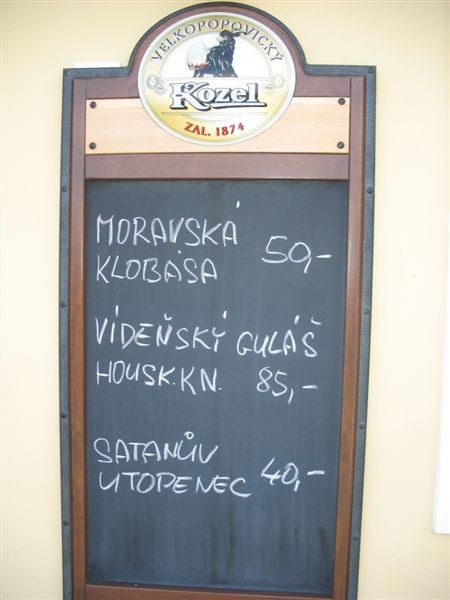 VELKOPOPOVICKÝ
Kozel
ZAL. 1874
MORAVSKÁ
KLOBÁSA 50,-
VÍDEŇSKÝ GULÁŠ
HOUSK.KN. 85,-
SATANŮV
UTOPENEC 40,-